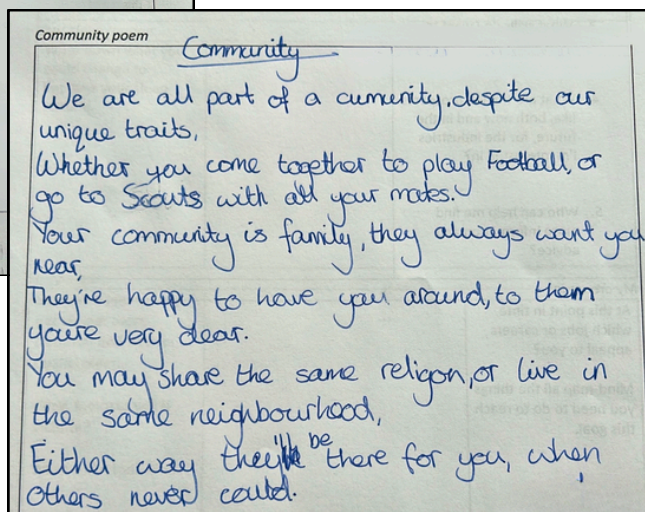 Community poem
Community
We are all part of a cumunity, despite our
unique traits,
Whether you come together to play Football, or
go to Scouts with all your mates.
Your community is family, they always want you
near,
They're happy to have you around, to them
you're very dear.
You may share the same religon, or live in
the same neighbourhood,
Either way they'll be there for you, when
others never could.